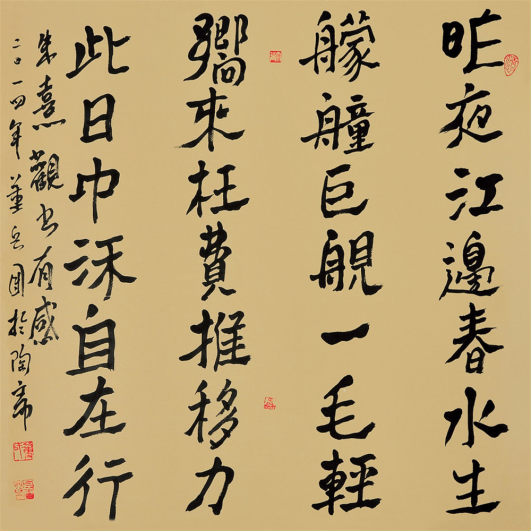 昨夜江邊春水生
艨艟巨舰一毛輕
嚮來枉費推移力
此日中流自在行
朱熹觀书有感
二〇一四年董岳於陶斋